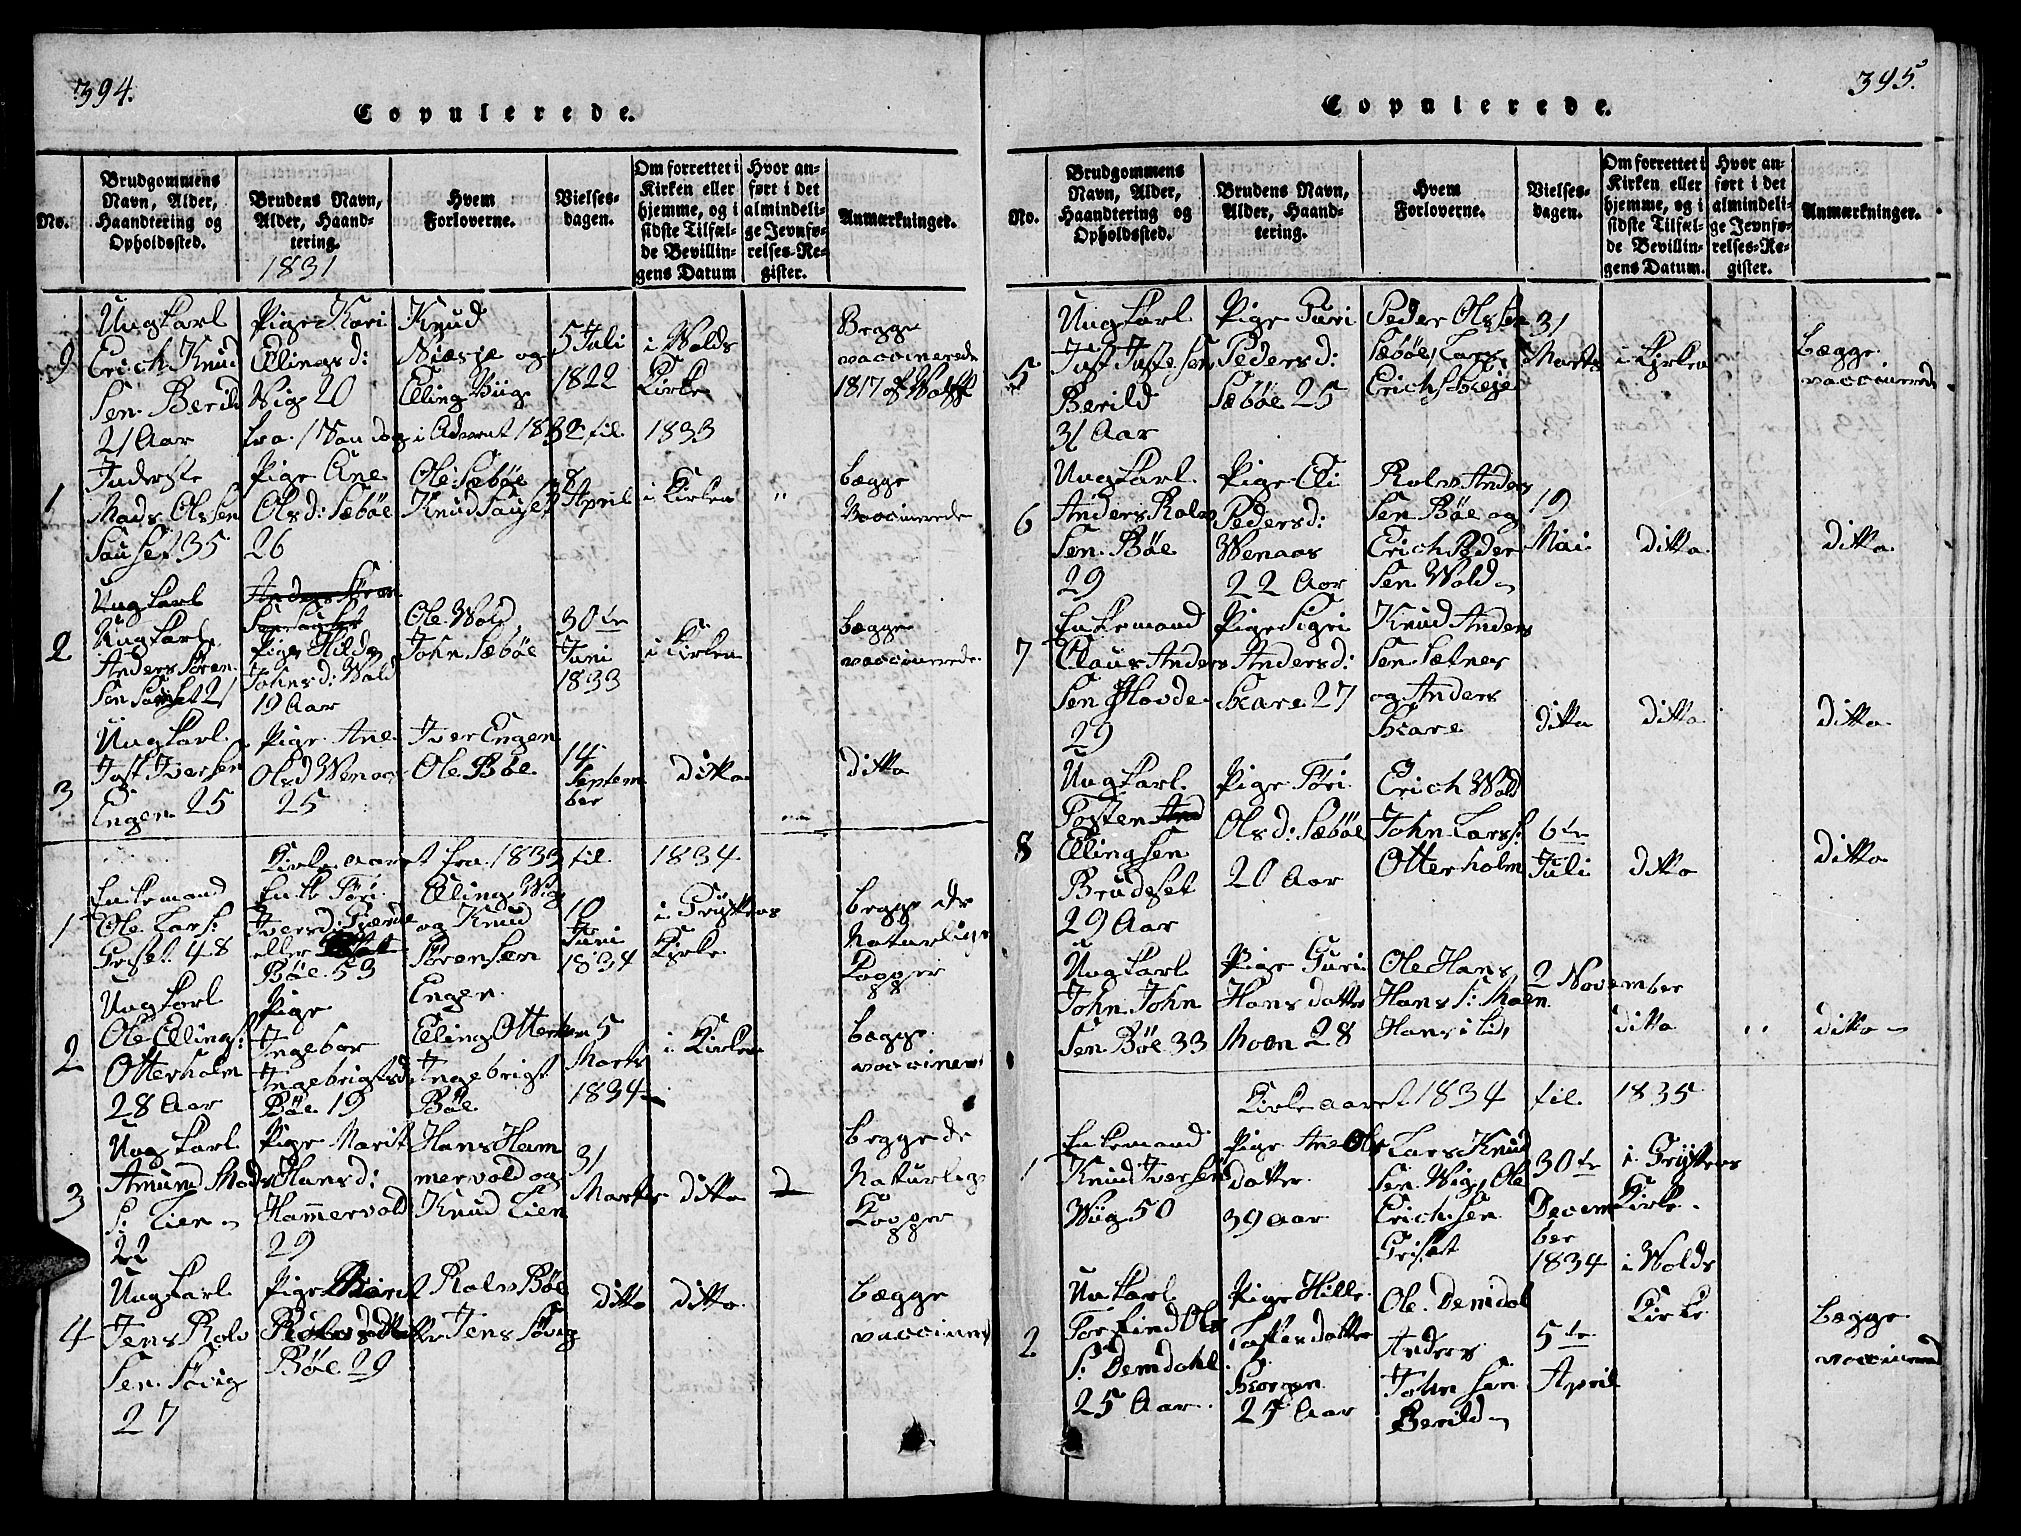 394.
Copulerede.
No.
Brudgommens
Navn, Alder,
Haandtering og
Opholdssted.
Brudens Navn,
Alder, Haand-
tering.
1831
Hvem
Forloverne.
Vielses-
dagen.
Om forrettet i
Kirken eller
hjemme, og i
sidste Tilfæl-
de Bevillin-
gens Datum
Hvor an-
ført i det
almindeli-
ge Jevnfø-
relses-Re-
gister.
Anmærkninger.
9
Ungkarl
Erich Knud
Sen Berild
21 Aar
Pige Kari
Ellingsd:
Vig 20
Knud
og
Elling Viig
5 Juli
1822
i Volds
Kirke
Begge
vaccinerede
1817 af
fra 1 Søndag i Advent 1832 til 1833
1
Inderste
Mads Olssen
Sauset 35
Pige Ane
Olsd: Sæbøe
26
Ole Sæbøe
Knud Sauset
8
April
i Kirken
"
bægge
Vaccinerede
2
Ungkarl
Ungkarl
Anders Søren
Sen Sauset 21
Pige Hilda
Johnsd: Vold
19 Aar
Ole Vold
John Sæbøe
30te
Juni
1833
i Kirken
bægge
vaccinerede
3
Ungkarl
Jost Iversen
Engen 25
Pige Ane
Olsd Venaas
25
Iver Engen
Ole Bøe
14
Septem
ber
ditto
ditto
Kirke aaret fra 1833 til 1834
1
Enkemand
Ole Lars:
Griset 48
Enke Føri
Iversd:
eller
Bøe 53
Elling Vig
og Knud
Sørensen
Engen
10
Juni
1834
i Gryttens
Kirke
begge de
Naturlige
Kopper
2
Ungkarl
Ole Ellings:
Otterholm
28 Aar
Pige
Ingebor
Ingebrigtsd
Bøe 19
Elling Otterholm
Ingebrigt
Bøe
5
Marts
1834
i Kirken
bægge
vaccinered
3
Ungkarl
Amund Mads
S: Lien
22
Pige Marit
Hansd:
Hammervold
29
Hans Ham
mervold og
Knud Lien
31
Marts
ditto
begge de
Naturlig
Kopper
4
Ungkarl
Jens Rolv
Sen Søvig
27
Pige Marit
Rolvsdatter
Bøe 29
Rolv Bøe
Jens Søvig
ditto
ditto
bægge
vaccinered
395.
Copulerede.
No.
Brudgommens
Navn, Alder,
Haandtering og
Opholdssted.
Brudens Navn,
Alder, Haand-
tering.
Hvem
Forloverne.
Vielses-
dagen.
Om forrettet i
Kirken eller
hjemme, og i
sidste Tilfæl-
de Bevillin-
gens Datum.
Hvor an-
ført i det
almindeli-
ge Jevnfø-
relses-Re-
gister.
Anmærkninger.
5
Ungkarl
Jost Jostesen
Berild
31 Aar
Pige Guri
Pedersd:
Sæbøe 25
Peder Olssen
Sæbøe, Lars
Erichs
31
Marts
i Kirken
bægge
vaccinerede
6
Ungkarl
Anders Rolv
Sen Bøe
29
Pige Eli
Pedersd:
Venaas
22 Aar
Rolv Anders
Sen Bøe og
Erich Peder
Sen Vold
19
Mai
ditto
ditto
7
Enkemand
Claus Anders
Sen Hovde
29
Pige Sigri
Andersd:
Skare 27
Knud Anders
Sen Sætnes
og Anders
Skare
ditto
ditto
ditto
8
Ungkarl
Tosten
Ellingsen
Brudeset
29 Aar
Pige Føri
Olsd: Sæbøe
20 Aar
Erich Vold
John Larss:
Otterholm
6te
Juli
ditto
ditto
Ungkarl
John John
Sen Bøe 33
Pige Guri
Hansdatter
Moen 28
Ole Hans
Hans S: Moen
Hans i Lid
2 November
ditto
"
ditto
Kirkeaaret 1834 til 1835
1
Enkemand
Knud Iversen
Viig 50
Pige Ane Ols
datter
39 aar
Lars Knud
Sen Vig, Ole
Erichsen
Griset
30te
Decem
ber
1834
i Gryttens
Kirke
2
Unkarl
Torfind Ols
S: Demdahl
25 Aar
Pige Hille
Tostendatter
Skorgen
25 Aar
Ole Demdal
Anders
John Sen
Berild
5te
April
i Volds
Kirke
bægge
vaccinered